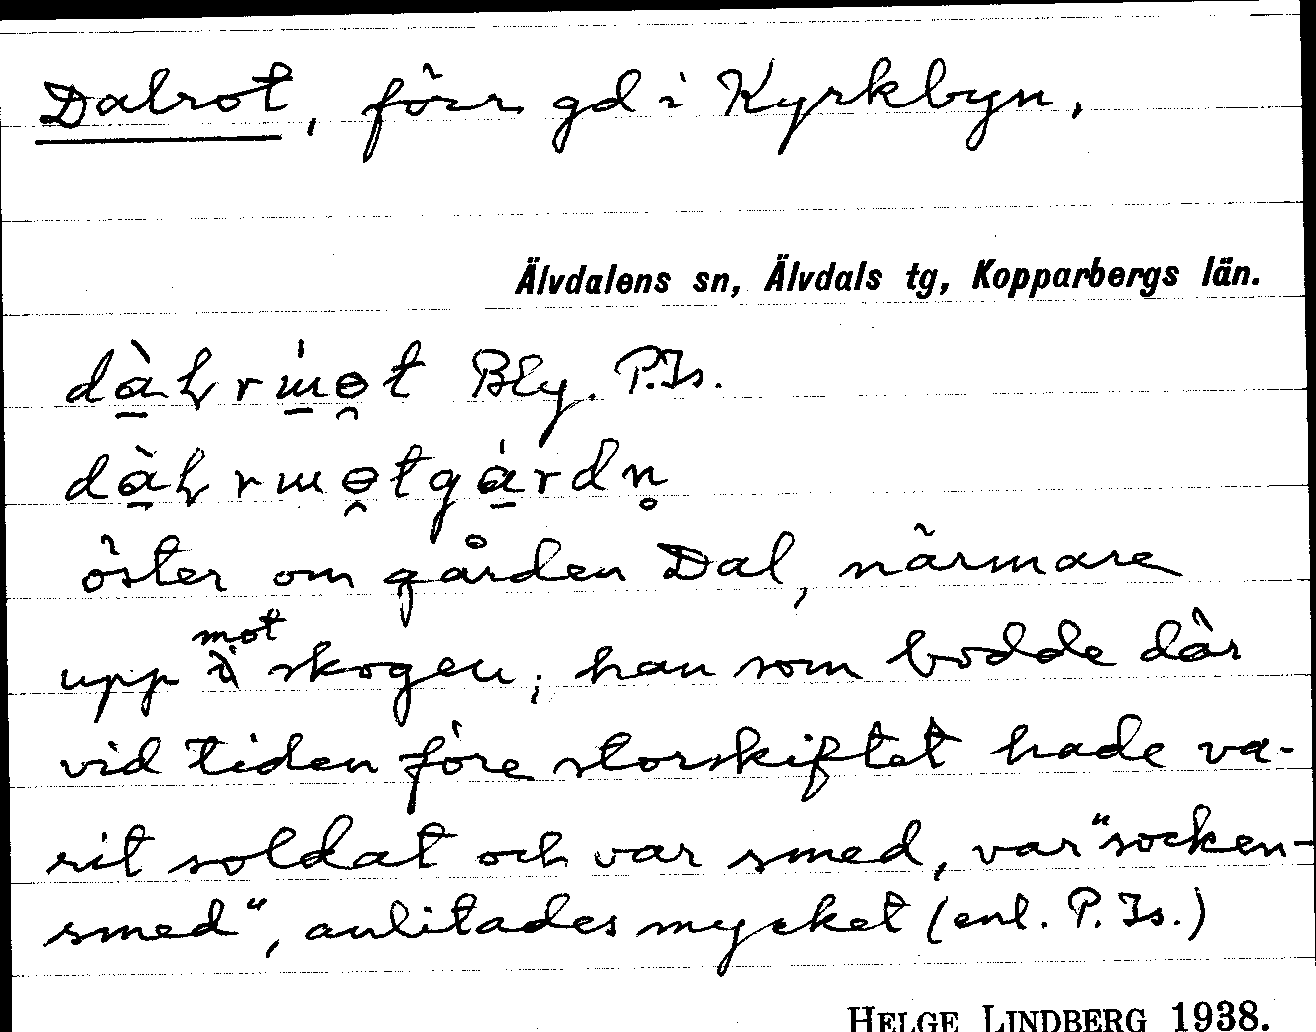 Dalrot, förr gd i Kyrkbyn,
Älvdalens sn, Älvdals tg, Kopparbergs län.
Bly. P.Is.
öster om gården Dal, närmare
upp mot skogen; han som bodde där
vid tiden före storskiftet hade va-
rit soldat och var smed, var "socken-
smed", anlitades mycket (enl. P. Is.)
HELGE LINDBERG 1938.